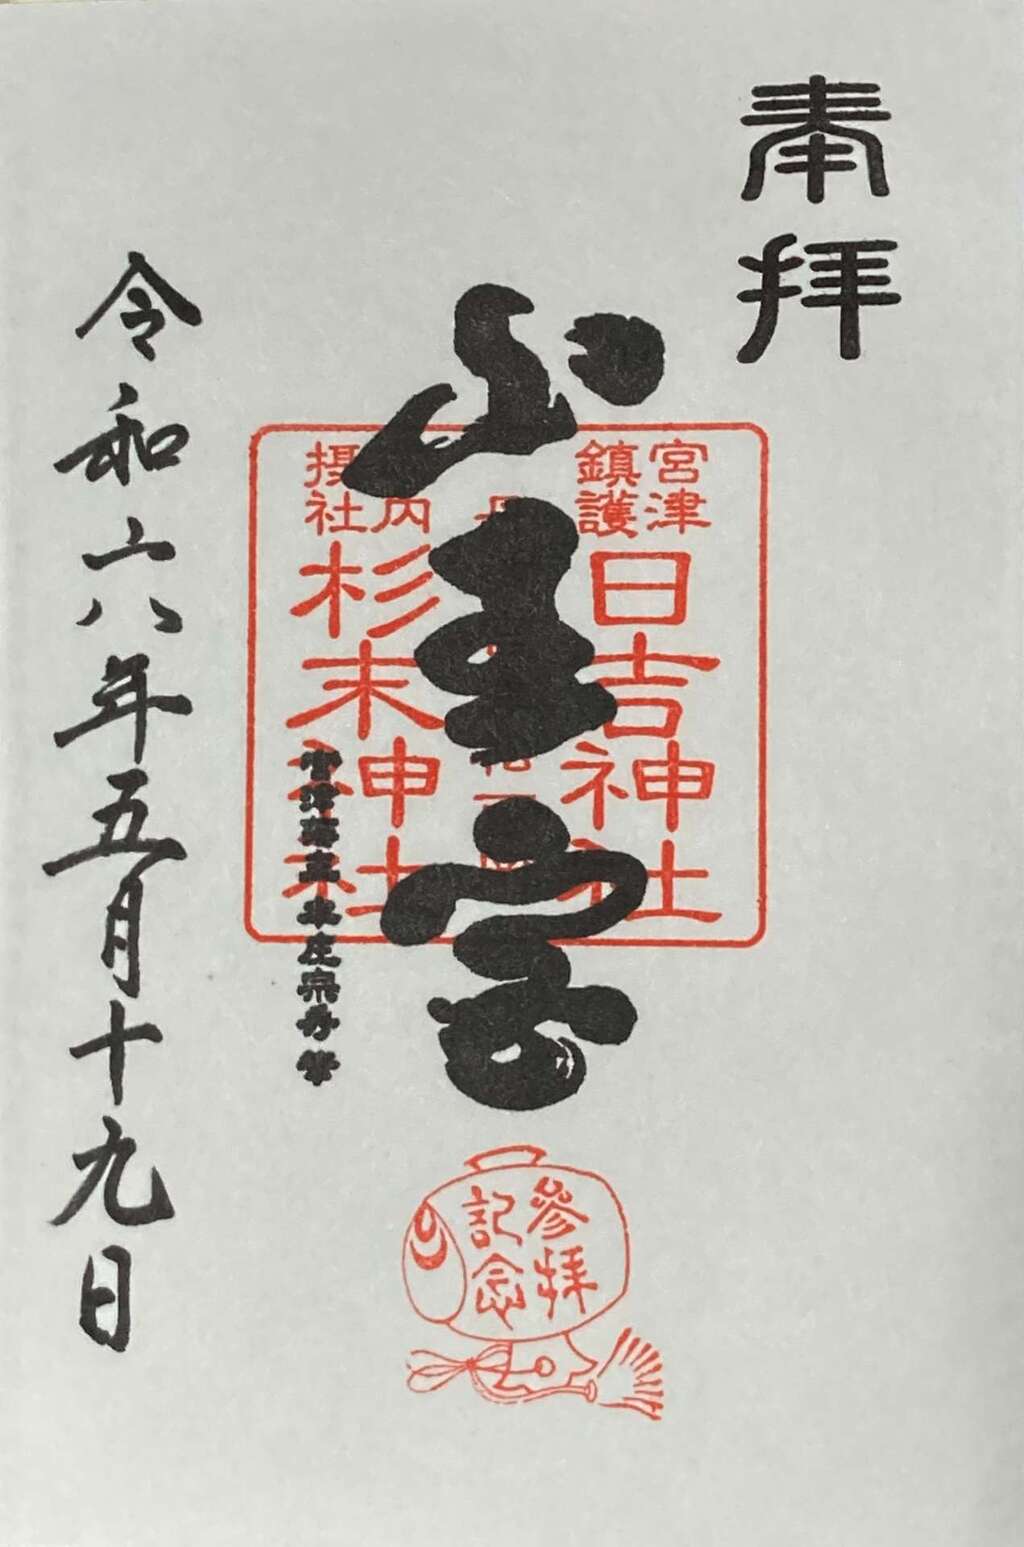 奉拝
宮津
鎮護
日吉神社
山王宮
内
摂社
杉末神社
宮津藩主本庄宗秀筆
参拝
記念
令和六年五月十九日